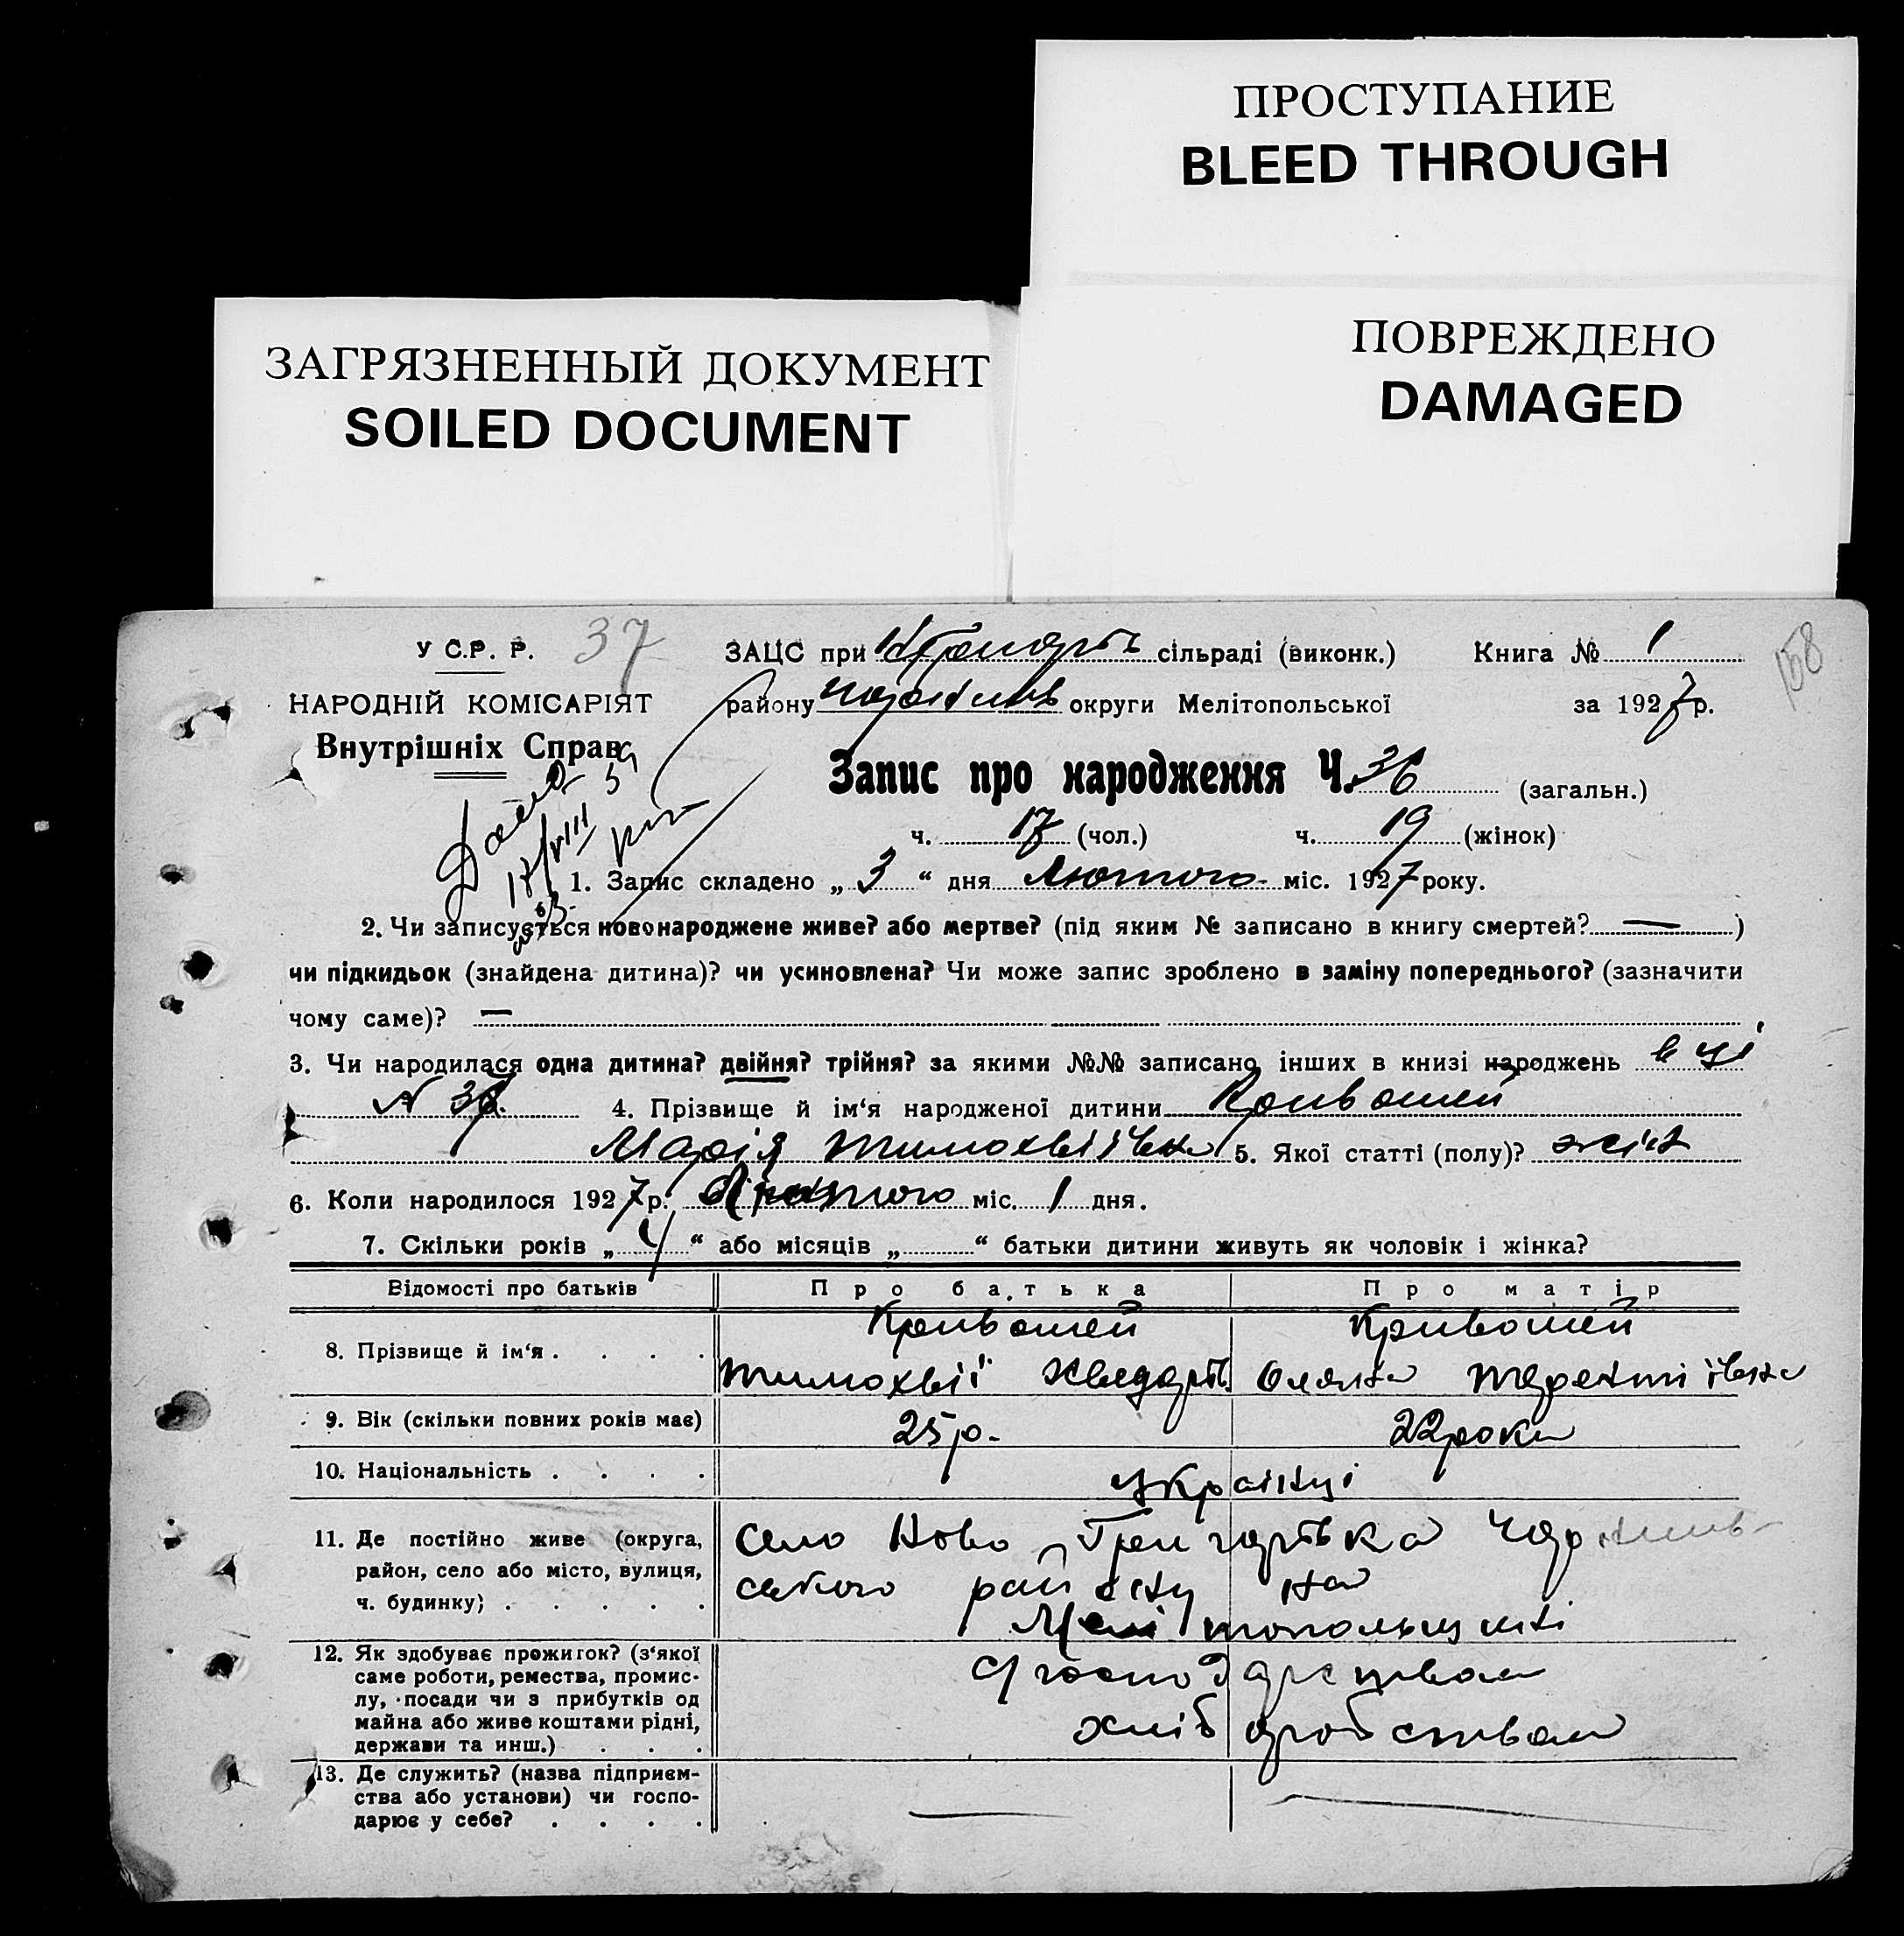 ПРОСТУПАНИЕ
BLEED THROUGH
ПОВРЕЖДЕНО
DAMAGED
ЗАГРЯЗНЕННЫЙ ДОКУМЕНТ
SOILED DOCUMENT
158
У С.Р. Р. 37
ЗАЦС при сільраді (виконк.) Книга № 1
НАРОДНІЙ КОМІСАРІЯТ
району округи Мелітопольської за 1927 р.
Внутрішніх Справ
Запис про народження Ч. 36 (загальн.)
ч. 17 (чол.) ч. 19 (жінок)
1. Запис складено „ 3 “ дня Лютого міс. 1927 року.
2. Чи записується новонароджене живе? або мертве? (під яким № записано в книгу смертей? — )
чи підкидьок (знайдена дитина)? чи усиновлена? Чи може запис зроблено в заміну попереднього? (зазначити
чому саме)? —
3. Чи народилася одна дитина? двійня? трійня? за якими №№ записано інших в книзі народжень в ці
N 4. Прізвище й ім‘я народженої дитини Кривошей
Марія Тимохвіївна 5. Якої статті (полу)? жін
6. Коли народилося 1927 р. Лютого міс. 1 дня.
7. Скільки років „ 4 “ або місяців „ “ батьки дитини живуть як чоловік і жінка?
Відомості про батьків Про батька Про матір
8. Прізвище й ім‘я . . . . Кривошей Кривошей
Тимохвій Хведоров. Олена Терентіївна
9. Вік (скільки повних років має) 25 р. 22 роки
10. Національність . . . . Українці
11. Де постійно живе (округа,
район, село або місто, вулиця,
ч. будинку; . . . . .
село Ново Григорівка
ського району на
Мелітопольщині
12. Як здобуває прожиток? (з‘якої
саме роботи, ремества, промис-
лу, посади чи з прибутків од
майна або живе коштами рідні,
держави та инш.) . . .
господарством
хліборобством
13. Де служить? (назва підприєм-
ства або установи) чи госпо-
дарює у себе? . . . .